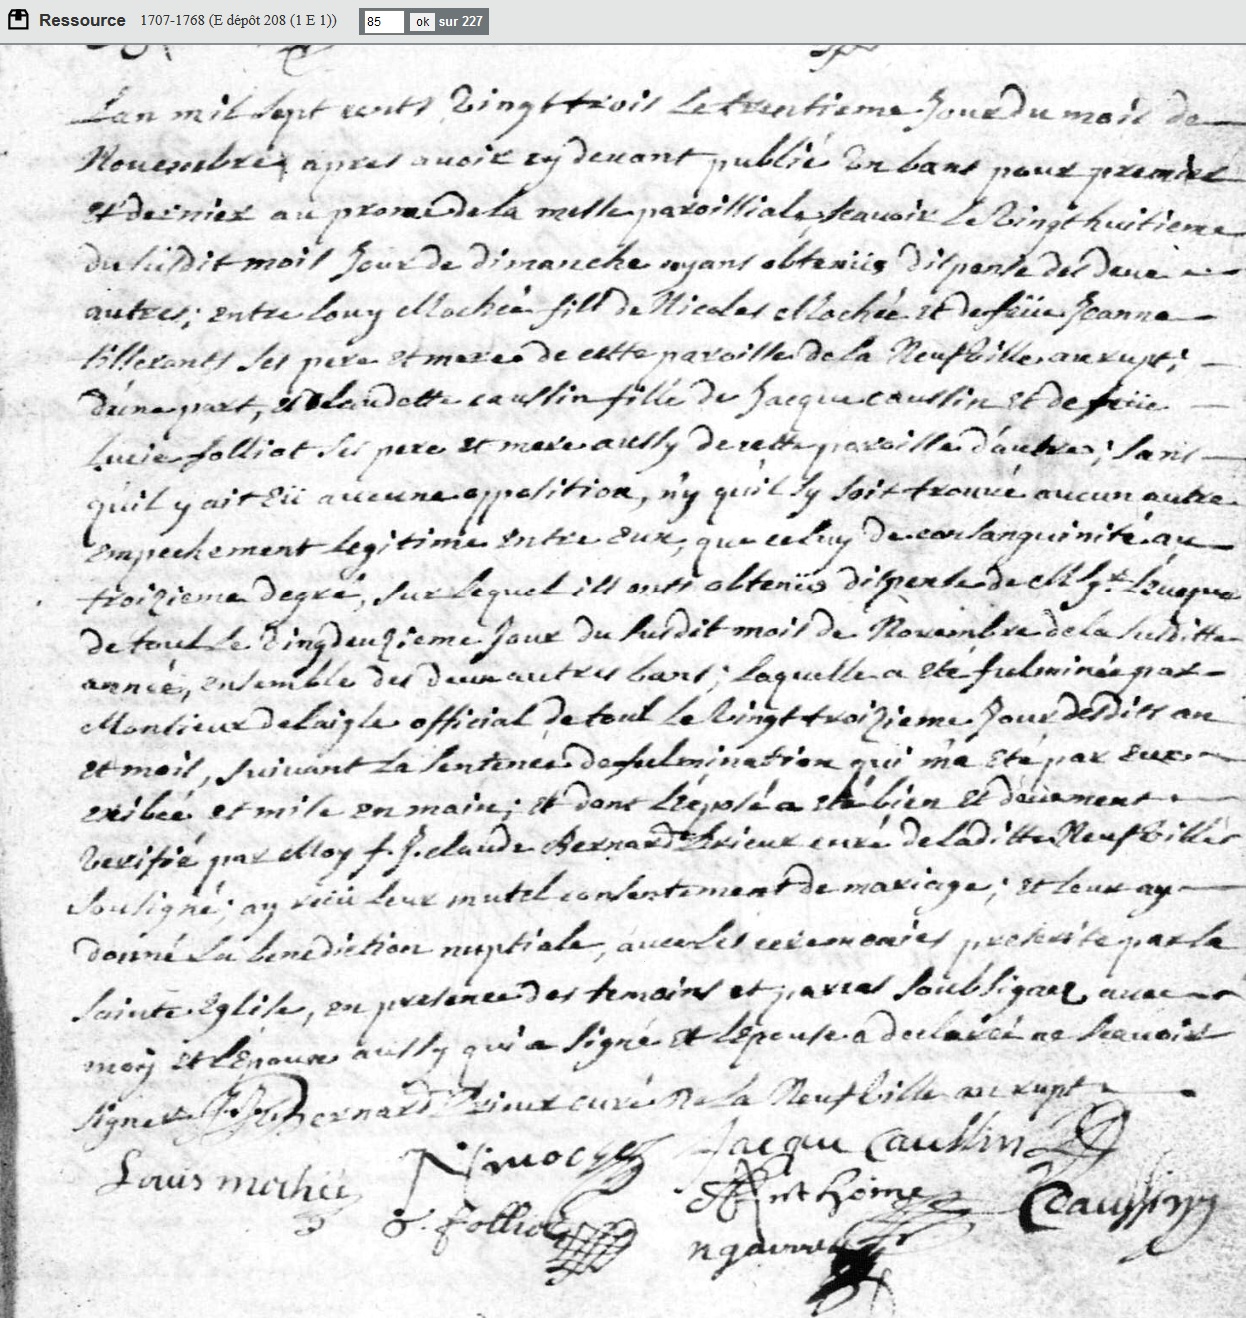 Ressource 1707-1768 (E dépôt 208 (1 E 1)) 85 ok sur 227
L'an mil sept cents vingt trois le trentieme Jour du mois de
Novembre, apres avoir cy devant publié un bans pour premier
et dernier au prone de la messe paroissiale, scavoir le vingt huitieme
du susdit mois Jour de dimanche ayans obtenüe dispense des deux
autres; entre Louy Mochée fils de Nicolas Mochée et de feüe Jeanne
ses pere et mere de cette paroisse de la Neufville au rupt;
d'une part, et Claudette caussin fille de Jacque caussin et de feüe
Lucie folliot ses pere et mere aussy de cette paroisse d'autre; sans
qu'il y ait eü aucune opposition, n'y qu'il sy soit trouvé aucun autre
Empechement legitime entre eux, que celuy de consanguinité au
troizieme degré, sur lequel ils onts obtenüe dispense de Mgr. L'eveque
de toul le vingdeuzieme Jour du susdit mois de Novembre de la susditte
année, ensemble des deux autres bans; laquelle a eté fulminée par
Monsieur delaigle official de toul le vingt troizieme Jour desdits an
et mois, suivant la sentence de fulmination qui m'a eté par eux
exibée et mise en main; et dont l'exposé a eté bien et deüement
verifié par Moy f. J. claude Bernard Prieur curé de laditte Neufville
sousigné; ay reçü leur mutel consentement de mariage; et leur ay
donné la benediction nuptiale, avec les ceremonies prescrite par la
sainte Eglise, en presence des temoins et soubsignez avec
moy et L'epoux aussy qui a signé et L'epouse a declarée ne scavoir
signer Bernard Prieur curé De la Neufville au rupt
Louis mochée N mochée Jacque Caussin
folliot Anthoine Caussin